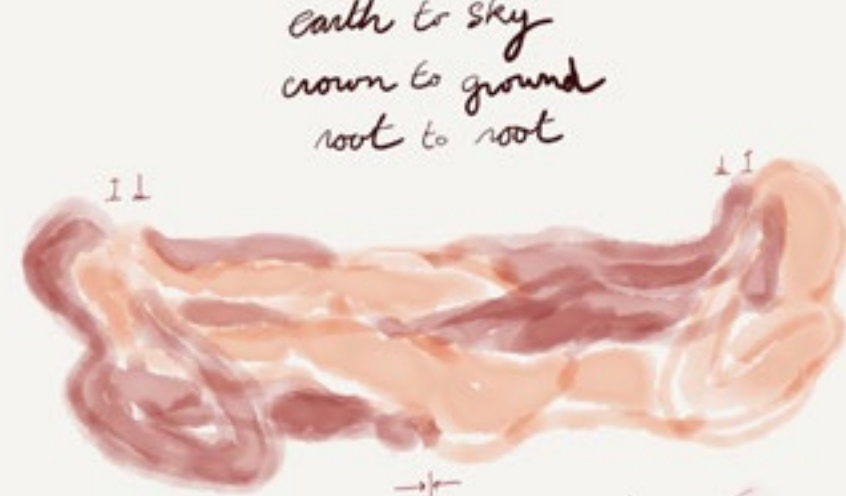 earth to sky
crown to ground
root to root